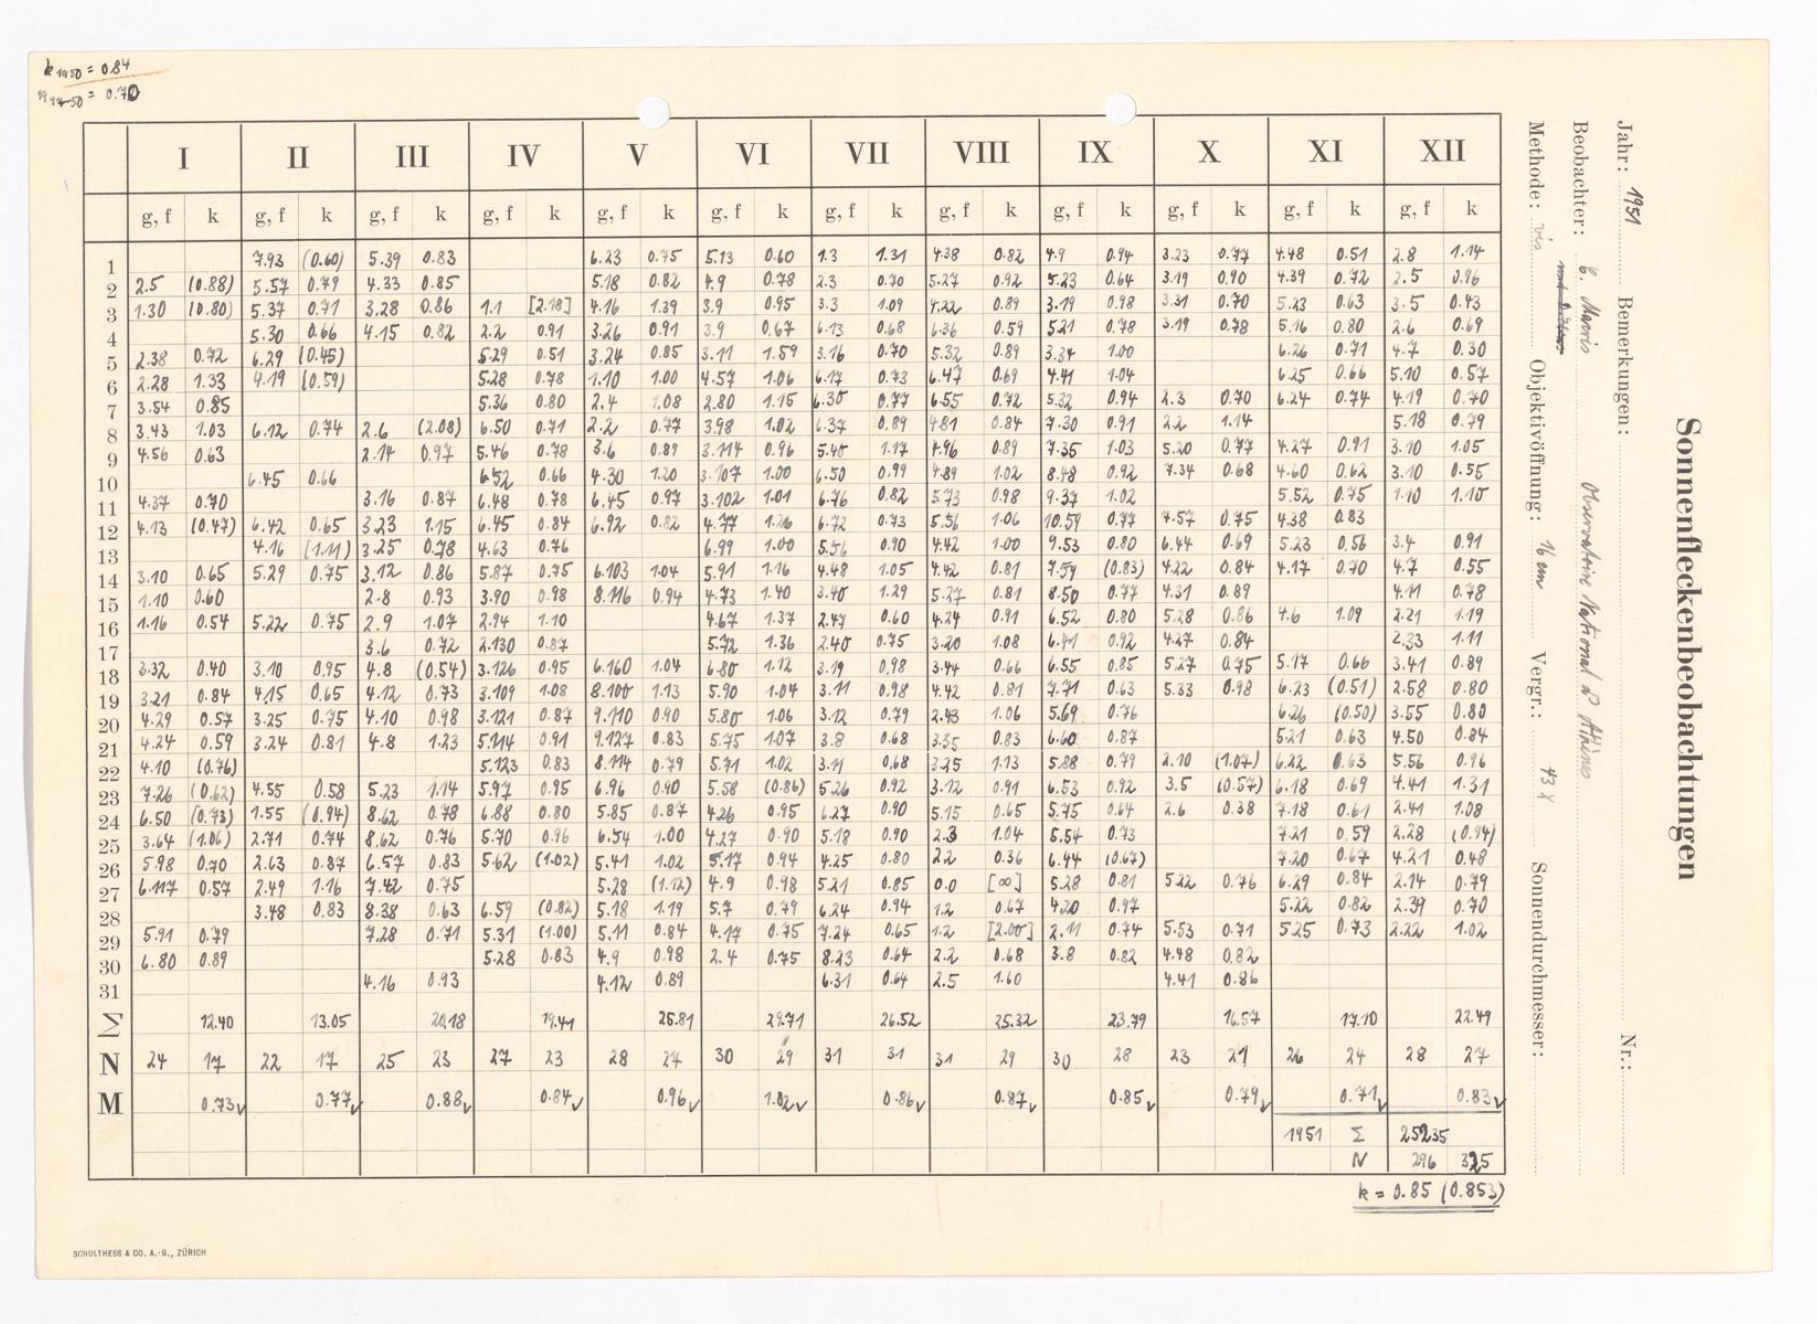 k 1950 = 0.84
19 44-50 = 0.70
I II III IV V VI VII VIII IX X XI XII
g, f k g, f k g, f k g, f k g, f k g, f k g, f k g, f k g, f k g, f k g, f k g, f k
1 7.93 (0.60) 5.39 0.83 6.23 0.75 5.13 0.60 1.3 1.31 4.38 0.82 4.9 0.94 3.23 0.77 4.48 0.51 2.8 1.14
2 2.5 (0.88) 5.57 0.79 4.33 0.85 5.18 0.82 4.9 0.78 2.3 0.70 5.27 0.92 5.23 0.64 3.19 0.90 4.39 0.72 2.5 0.96
3 1.30 (0.80) 5.37 0.71 3.28 0.86 1.1 [2.18] 4.16 1.39 3.9 0.95 3.3 1.09 4.22 0.89 3.19 0.98 3.31 0.70 5.23 0.63 3.5 0.43
4 5.30 0.66 4.15 0.82 2.2 0.91 3.26 0.91 3.9 0.67 6.13 0.68 6.36 0.59 5.21 0.78 3.19 0.78 5.16 0.80 2.6 0.69
5 2.38 0.72 6.29 (0.45) 5.29 0.51 3.24 0.85 3.11 1.59 3.16 0.70 5.32 0.89 3.34 1.00 6.26 0.71 4.7 0.30
6 2.28 1.33 4.19 (0.59) 5.28 0.78 1.10 1.00 4.57 1.06 6.17 0.73 6.47 0.69 4.41 1.04 6.25 0.66 5.10 0.57
7 3.54 0.85 5.36 0.80 2.4 1.08 2.80 1.15 6.30 0.77 6.55 0.72 5.32 0.94 2.3 0.70 6.24 0.74 4.19 0.70
8 3.43 1.03 6.12 0.74 2.6 (2.08) 6.50 0.71 2.2 0.77 3.98 1.02 6.37 0.89 4.81 0.84 7.30 0.91 2.2 1.14 5.18 0.79
9 4.56 0.63 2.14 0.97 5.46 0.78 3.6 0.89 3.114 0.96 5.40 1.17 4.96 0.89 7.35 1.03 5.20 0.77 4.27 0.91 3.10 1.05
10 6.45 0.66 6.52 0.66 4.30 1.20 3.107 1.00 6.50 0.99 4.89 1.02 8.48 0.92 7.34 0.68 4.60 0.62 3.10 0.55
11 4.37 0.70 3.16 0.87 6.48 0.78 6.45 0.97 3.102 1.01 6.76 0.82 5.73 0.98 9.37 1.02 5.52 0.75 1.10 1.10
12 4.13 (0.47) 6.42 0.65 3.23 1.15 6.45 0.84 6.92 0.82 4.77 1.26 6.72 0.73 5.56 1.06 10.59 0.77 7.57 0.75 4.38 0.83
13 4.16 (1.11) 3.25 0.78 4.63 0.76 6.99 1.00 5.56 0.90 4.42 1.00 9.53 0.80 6.44 0.69 5.23 0.56 3.4 0.91
14 3.10 0.65 5.29 0.75 3.12 0.86 5.87 0.75 6.103 1.04 5.91 1.16 4.48 1.05 4.42 0.81 7.54 (0.83) 4.22 0.84 4.17 0.70 4.7 0.55
15 1.10 0.60 2.8 0.93 3.90 0.98 8.116 0.94 4.73 1.40 3.40 1.29 5.27 0.81 8.50 0.77 4.31 0.89 4.11 0.78
16 1.16 0.54 5.22 0.75 2.9 1.07 2.94 1.10 4.67 1.37 2.47 0.60 4.24 0.91 6.52 0.80 5.28 0.86 4.6 1.09 2.21 1.19
17 3.6 0.72 2.130 0.87 5.72 1.36 2.40 0.75 3.20 1.08 6.41 0.92 4.27 0.84 2.33 1.11
18 3.32 0.40 3.10 0.95 4.8 (0.54) 3.126 0.95 6.160 1.04 6.80 1.12 3.19 0.98 3.44 0.66 6.55 0.85 5.27 0.75 5.17 0.66 3.41 0.89
19 3.21 0.84 4.15 0.65 4.12 0.73 3.109 1.08 8.100 1.13 5.90 1.04 3.11 0.98 4.42 0.81 7.71 0.63 5.33 0.98 6.23 (0.51) 2.58 0.80
20 4.29 0.57 3.25 0.75 4.10 0.98 3.121 0.87 9.110 0.90 5.80 1.06 3.12 0.79 2.43 1.06 5.69 0.76 6.26 (0.50) 3.55 0.80
21 4.24 0.59 3.24 0.81 4.8 1.23 5.114 0.91 9.127 0.83 5.75 1.07 3.8 0.68 3.35 0.83 6.60 0.87 5.21 0.63 4.50 0.84
22 4.10 (0.76) 5.123 0.83 8.114 0.79 5.71 1.02 3.11 0.68 3.25 1.13 5.88 0.79 2.10 (1.07) 6.22 0.63 5.56 0.96
23 7.26 (0.62) 4.55 0.58 5.23 1.14 5.97 0.95 6.96 0.90 5.58 (0.86) 5.26 0.92 3.12 0.91 6.53 0.92 3.5 (0.57) 6.18 0.69 4.41 1.31
24 6.50 (0.73) 1.55 (0.94) 8.62 0.78 6.88 0.80 5.85 0.87 4.26 0.95 6.27 0.90 5.15 0.65 5.75 0.64 2.6 0.38 7.18 0.61 2.41 1.08
25 3.64 (1.06) 2.71 0.74 8.62 0.76 5.70 0.96 6.54 1.00 4.27 0.90 5.18 0.90 2.3 1.04 5.54 0.73 7.21 0.59 2.28 (0.94)
26 5.98 0.70 2.63 0.87 6.57 0.83 5.62 (1.02) 5.41 1.02 5.17 0.94 4.25 0.80 2.2 0.36 6.44 (0.67) 7.20 0.67 4.21 0.48
27 6.117 0.57 2.49 1.16 7.42 0.75 5.28 (1.12) 4.9 0.98 5.21 0.85 0.0 [∞] 5.28 0.81 5.22 0.76 6.29 0.84 2.14 0.79
28 3.48 0.83 8.38 0.63 6.59 (0.82) 5.18 1.19 5.7 0.79 6.24 0.94 1.2 0.67 4.20 0.97 5.22 0.82 2.39 0.70
29 5.91 0.79 7.28 0.71 5.31 (1.00) 5.11 0.84 4.17 0.75 7.24 0.65 1.2 [2.00] 2.11 0.74 5.53 0.71 5.25 0.73 2.22 1.02
30 6.80 0.89 5.28 0.83 4.9 0.98 2.4 0.75 8.23 0.64 2.2 0.68 3.8 0.82 4.48 0.82
31 4.16 0.93 4.12 0.89 6.31 0.64 2.5 1.60 4.41 0.86
Σ 12.40 13.05 20.18 19.41 25.81 29.71 26.52 25.32 23.79 16.57 17.10 22.49
N 24 17 22 17 25 23 27 23 28 27 30 29 31 31 31 29 30 28 23 21 26 24 28 27
M 0.73✓ 0.77✓ 0.88✓ 0.84✓ 0.96✓ 1.02✓ 0.86✓ 0.87✓ 0.85✓ 0.79✓ 0.71✓ 0.83✓
1951 Σ 252.35
N 296 325
k = 0.85 (0.853)
SCHULTHESS & CO. A.-G., ZÜRICH
Sonnenfleckenbeobachtungen
Jahr: 1951 Bemerkungen: Nr.:
Beobachter: Observatoire National d'Athènes
Methode: vis Objektivöffnung: 16 cm Vergr.: 43 X Sonnendurchmesser: